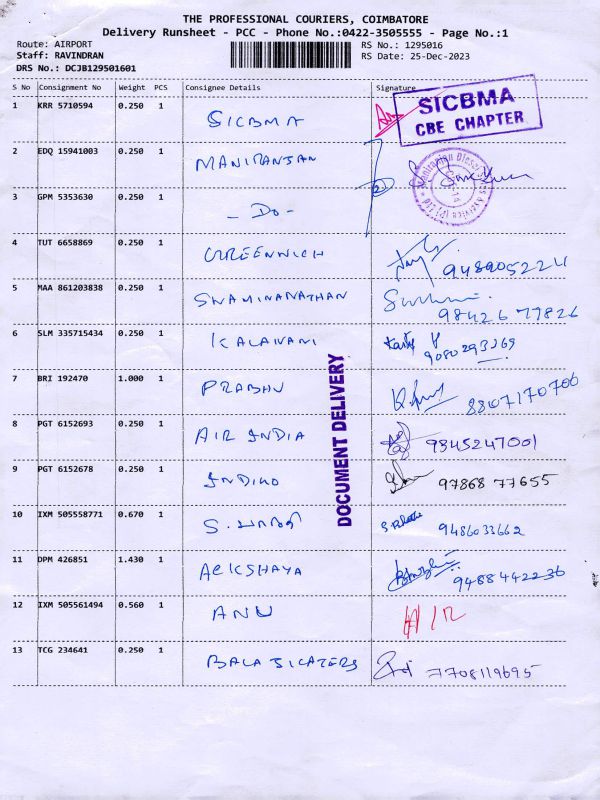 THE PROFESSIONAL COURIERS, COIMBATORE
Delivery Runsheet - PCC - Phone No.:0422-3505555 - Page No.:1
Route: AIRPORT
Staff: RAVINDRAN
DRS No.: DCJB129501601
RS No.: 1295016
RS Date: 25-Dec-2023
S No Consignment No Weight PCS Consignee Details Signature
1 KRR 5710594 0.250 1 SICBMA
SICBMA
CBE CHAPTER
2 EDQ 15941003 0.250 1 MANIRANJAN
3 GPM 5353630 0.250 1 - DO -
4 TUT 6658869 0.250 1 GREENWICH 9489052211
5 MAA 861203838 0.250 1 SWAMINANATHAN 98426 77826
6 SLM 335715434 0.250 1 KALAIVANI 9080293569
7 BRI 192470 1.000 1 PRABHU 8807170706
DOCUMENT DELIVERY
8 PGT 6152693 0.250 1 AIR INDIA 9345247001
9 PGT 6152678 0.250 1 INDIGO 97868 77655
10 IXM 505558771 0.670 1 9486033662
11 DPM 426851 1.430 1 AEKSHAYA 9488442236
12 IXM 505561494 0.560 1 ANU
13 TCG 234641 0.250 1 BALAJI CATERS 7708119695